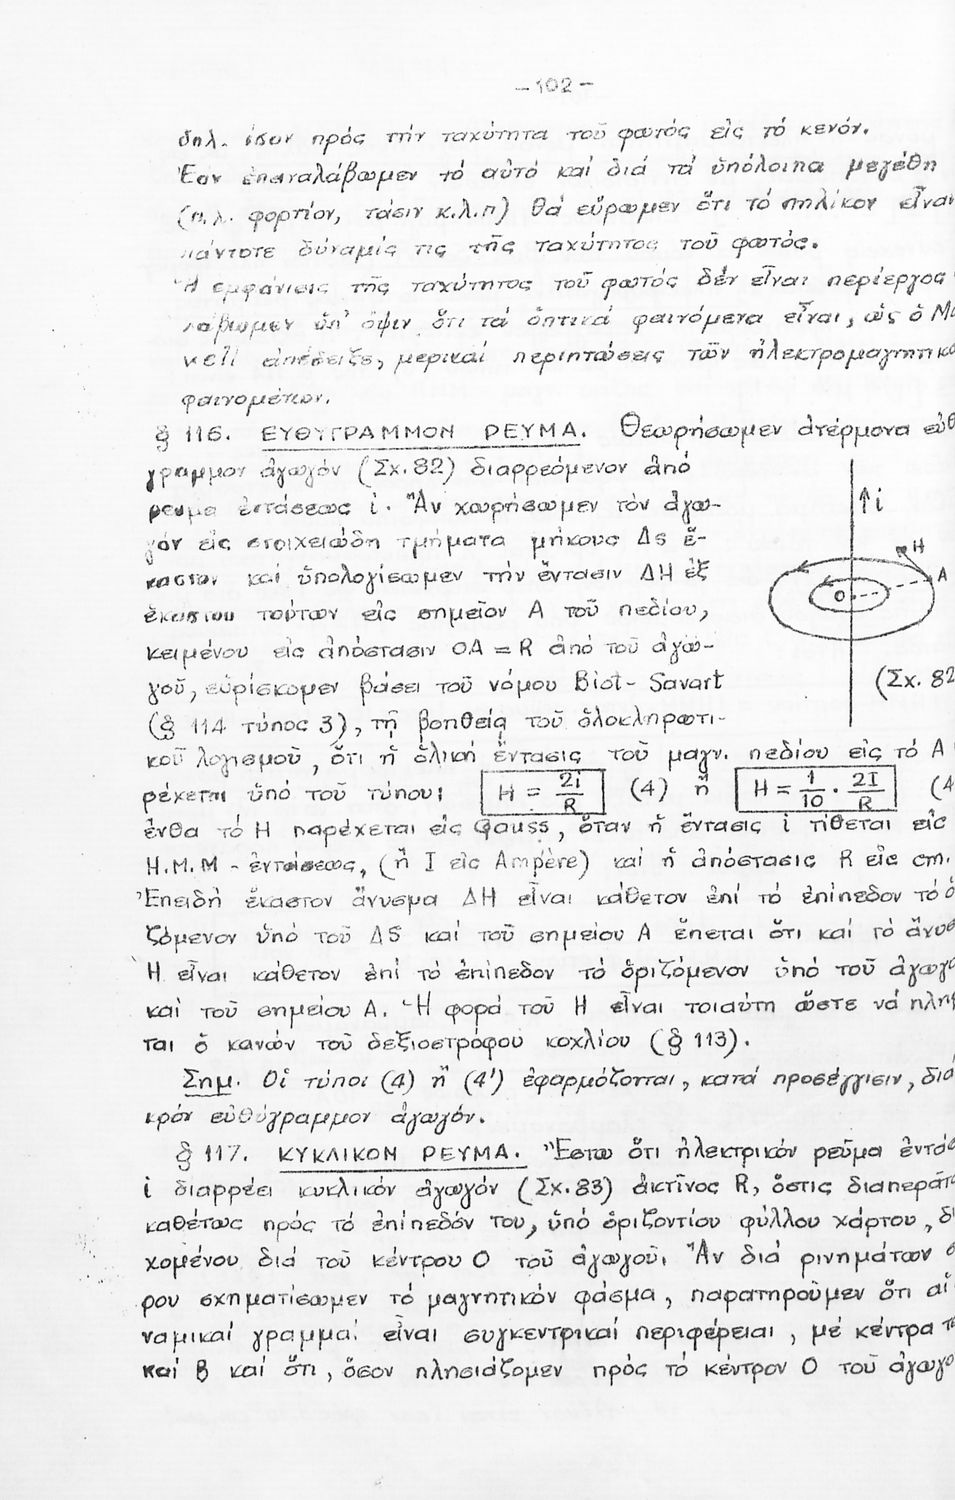 -102-
δηλ. ἴσον πρός τήν ταχύτητα τοῦ φωτός εἰς τό κενόν.
Ἐάν ἐπαναλάβωμεν τό αὐτό καί διά τά ὑπόλοιπα μεγέθη
(π.χ. φορτίον, τάσιν κ.λ.π) θά εὕρωμεν ὅτι τό πηλίκον εἶναι
πάντοτε δύναμίς τις τῆς ταχύτητος τοῦ φωτός.
Ἡ ἐμφάνισις τῆς ταχύτητος τοῦ φωτός δέν εἶναι περίεργος
λάβωμεν ὑπ' ὄψιν ὅτι τά ὀπτικά φαινόμενα εἶναι, ὡς ὁ Μα
well ἀπέδειξε, μερικαί περιπτώσεις τῶν ἠλεκτρομαγνητικῶ
φαινομένων.
§ 116. ΕΥΘΥΓΡΑΜΜΟΝ ΡΕΥΜΑ. Θεωρήσωμεν ἀτέρμονα εὐθ
γραμμον ἀγωγόν (Σχ. 82) διαρρεόμενον ἀπό
ρεῦμα ἐντάσεως i. Ἄν χωρήσωμεν τόν ἀγω-
γόν εἰς στοιχειώδη τμήματα μήκους Δs ἕ-
καστον καί ὑπολογίσωμεν τήν ἔντασιν ΔΗ ἐξ
ἑκάστου τούτων εἰς σημεῖον Α τοῦ πεδίου,
κειμένου εἰς ἀπόστασιν ΟΑ = R ἀπό τοῦ ἀγω-
γοῦ, εὑρίσκομεν βάσει τοῦ νόμου Biot- Savart
(§ 114 τύπος 3), τῇ βοηθείᾳ τοῦ ὁλοκληρωτι-
κοῦ λογισμοῦ, ὅτι ἡ ὁλική ἔντασις τοῦ μαγν. πεδίου εἰς τό Α
ρέχεται ὑπό τοῦ τύπου: H = 2i/R (4) ἤ H = 1/10 · 2I/R (4
ἔνθα τό Η παρέχεται εἰς Gauss, ὅταν ἡ ἔντασις i τίθεται εἰς
Η.Μ.Μ - ἐντάσεως, (ἤ I εἰς Ampère) καί ἡ ἀπόστασις R εἰς cm.
Ἐπειδή ἕκαστον ἄνυσμα ΔΗ εἶναι κάθετον ἐπί τό ἐπίπεδον τό ὁ
ζόμενον ὑπό τοῦ ΔS καί τοῦ σημείου Α ἕπεται ὅτι καί τό ἄνυσ
Η εἶναι κάθετον ἐπί τό ἐπίπεδον τό ὁριζόμενον ὑπό τοῦ ἀγωγο
καί τοῦ σημείου Α. Ἡ φορά τοῦ Η εἶναι τοιαύτη ὥστε νά πλη
ται ὁ κανών τοῦ δεξιοστρόφου κοχλίου (§ 113).
Σημ. Οἱ τύποι (4) ἤ (4') ἐφαρμόζονται, κατά προσέγγισιν, διά
κρόν εὐθύγραμμον ἀγωγόν.
§ 117. ΚΥΚΛΙΚΟΝ ΡΕΥΜΑ. Ἔστω ὅτι ἠλεκτρικόν ρεῦμα ἐντάσ
i διαρρέει κυκλικόν ἀγωγόν (Σχ. 83) ἀκτῖνος R, ὅστις διαπερᾶτ
καθέτως πρός τό ἐπίπεδόν του, ὑπό ὁριζοντίου φύλλου χάρτου, δι
χομένου διά τοῦ κέντρου Ο τοῦ ἀγωγοῦ. Ἄν διά ρινημάτων σ
ρου σχηματίσωμεν τό μαγνητικόν φάσμα, παρατηροῦμεν ὅτι αἱ
ναμικαί γραμμαί εἶναι συγκεντρικαί περιφέρειαι, μέ κέντρα τ
καί Β καί ὅτι, ὅσον πλησιάζομεν πρός τό κέντρον Ο τοῦ ἀγωγο
i
H
A
O
(Σχ. 82